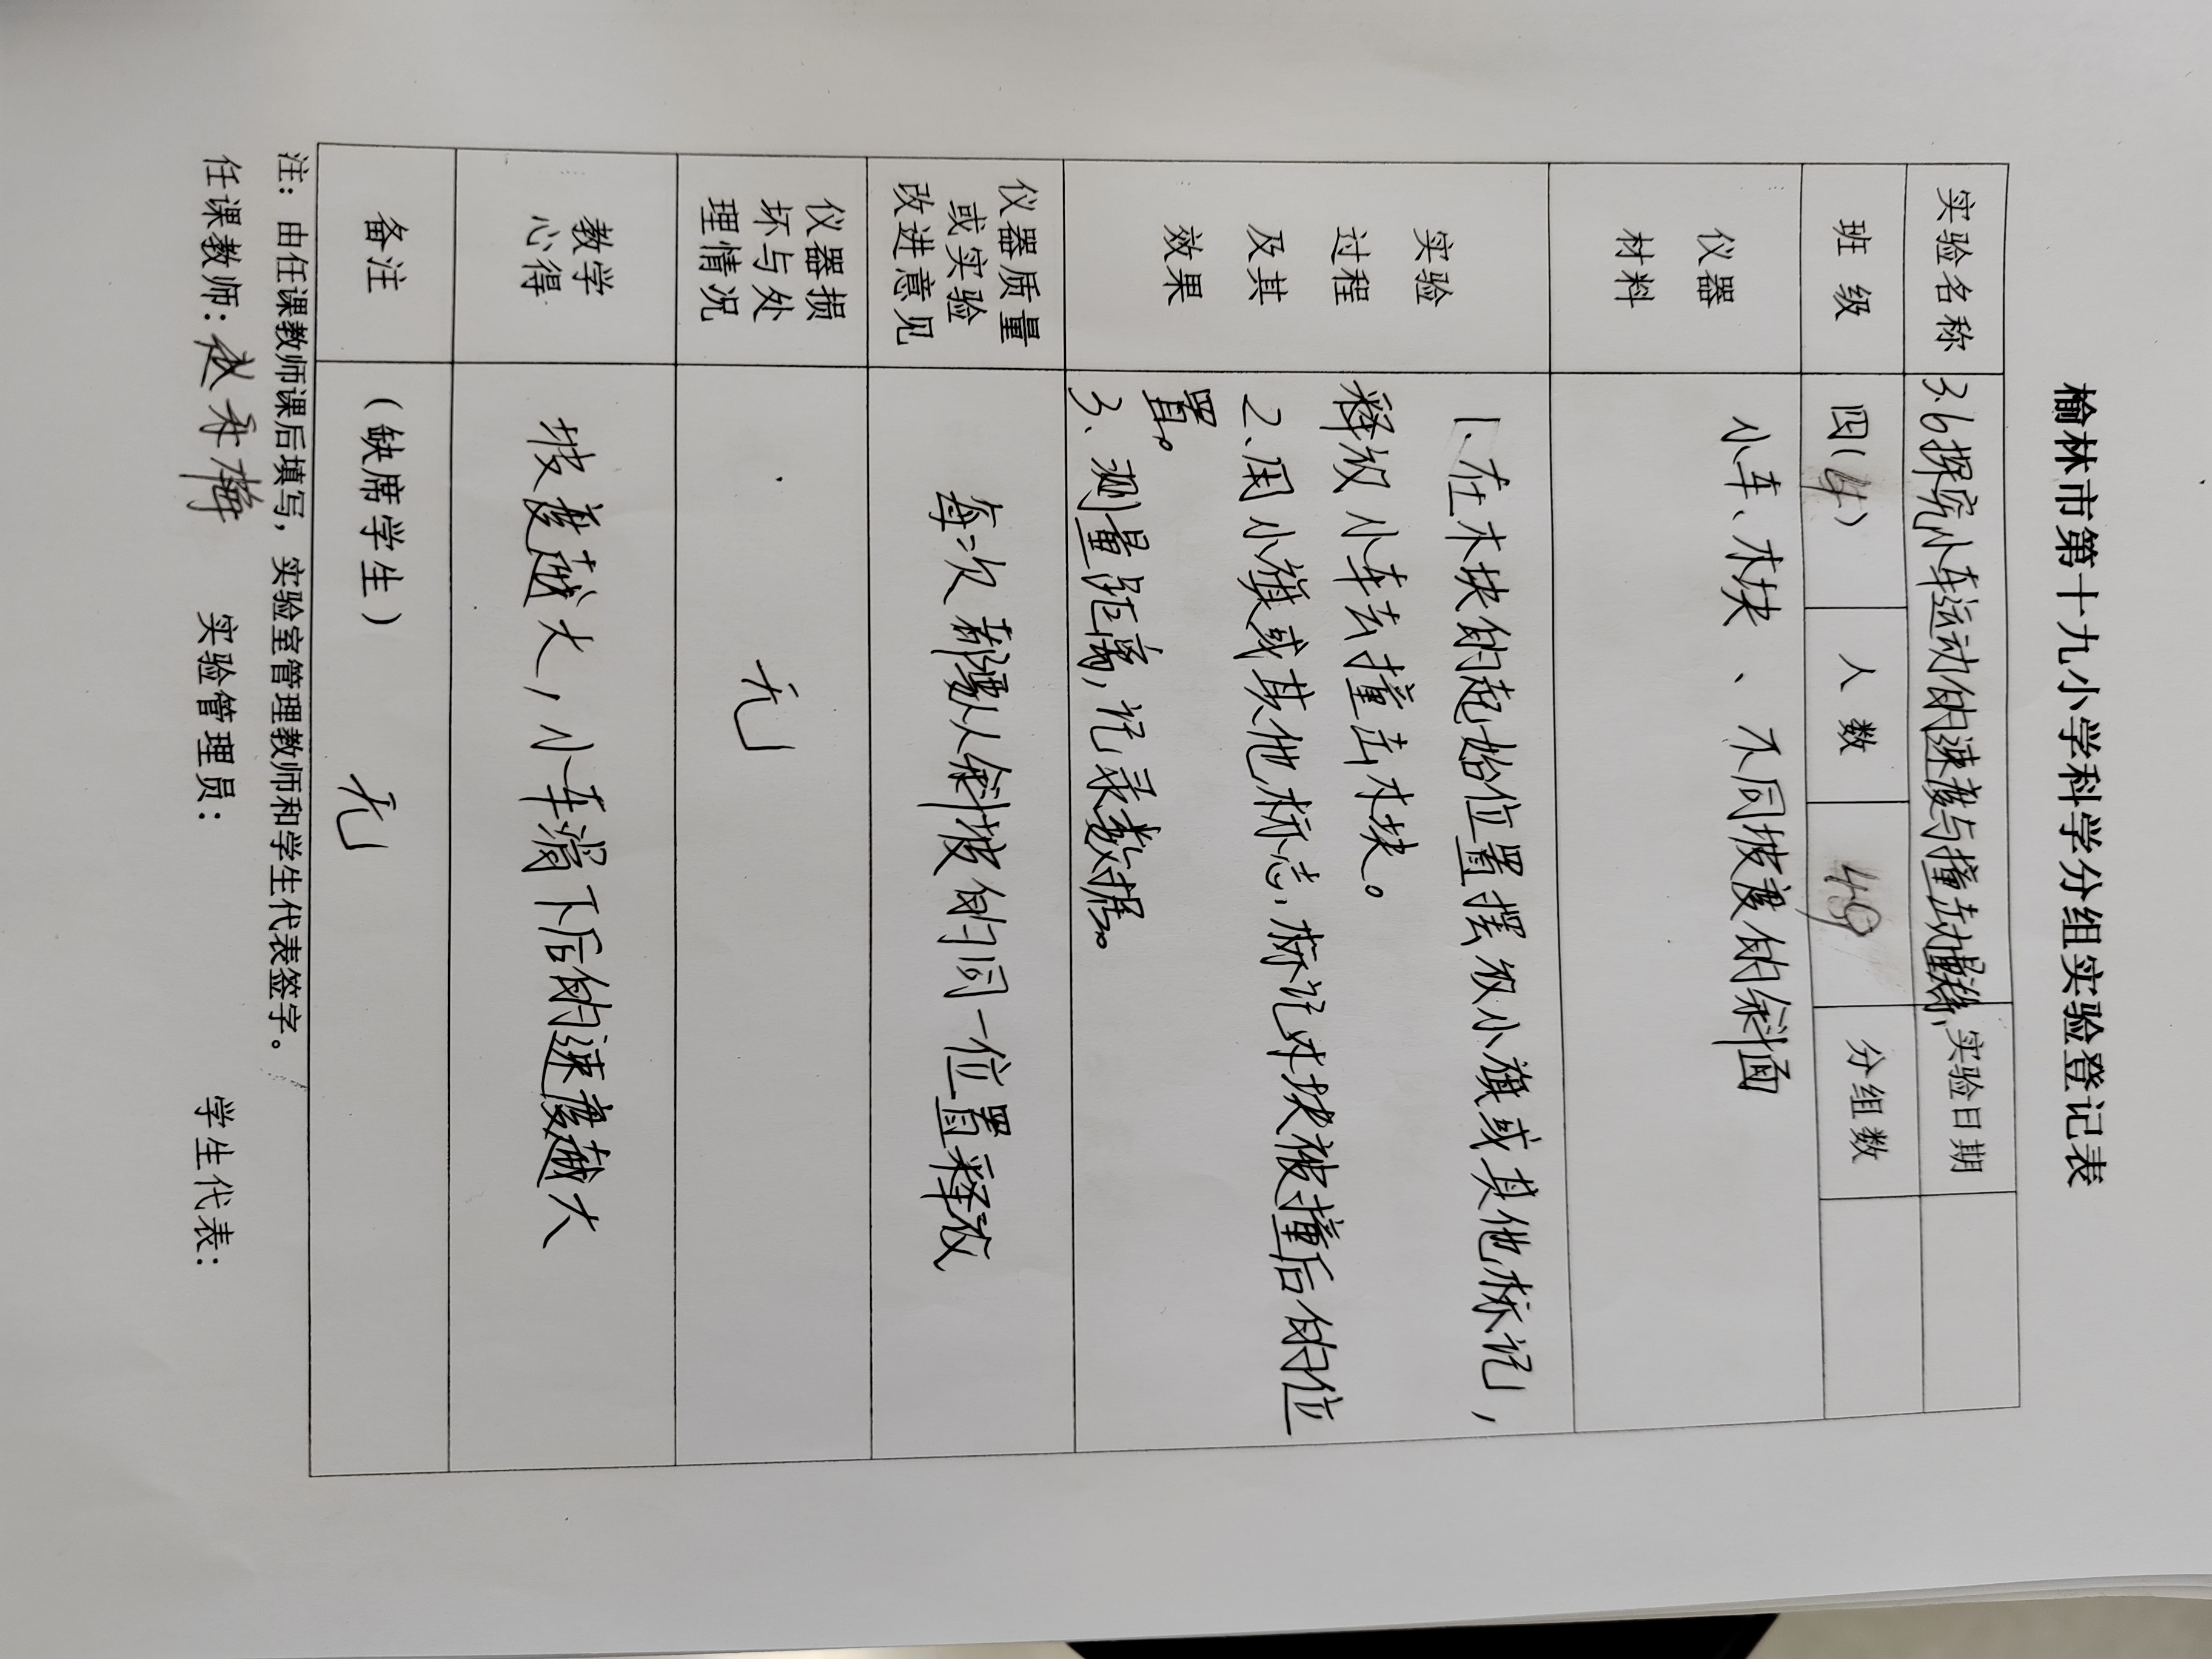 榆林市第十九小学科学分组实验登记表
实验名称 3.6探究小车运动的速度与撞击 实验日期
班 级 四(4) 人 数 49 分组数
仪器 材料 小车、木块、不同坡度的斜面
实验 过程 及其 效果
1、在木块的起始位置摆放小旗或其他标记,
释放小车去撞击木块。
2、用小旗或其他标志,标记木块被撞后的位
置。
3、测量距离,记录数据。
仪器质量 或实验 改进意见 每次都要从斜坡的同一位置释放
仪器损 坏与处 理情况 无
教学 心得 坡度越大,小车滑下后的速度越大
备注 (缺席学生) 无
注: 由任课教师课后填写, 实验室管理教师和学生代表签字。
任课教师: 赵 梅 实验管理员: 学生代表: